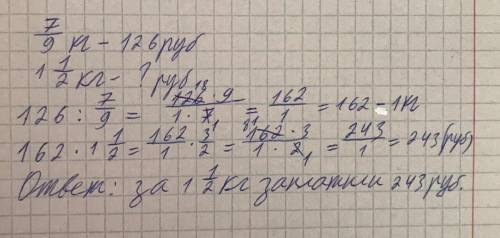 7/9 кг - 126 руб
1 1/2 кг - ? руб
126 : 7/9 = 126 · 9 / 1 · 7 = 162/1 = 162 - 1 кг
162 · 1 1/2 = 162/1 · 3/2 = 162 · 3 / 1 · 2 = 243/1 = 243 (руб)
Ответ: за 1 1/2 кг заплатили 243 руб.